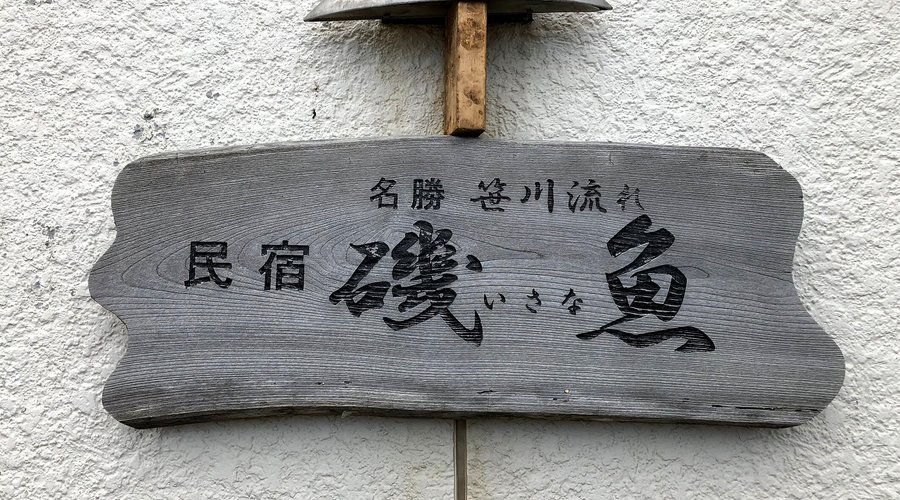 名勝 笹川流れ
民宿 磯魚
いさな